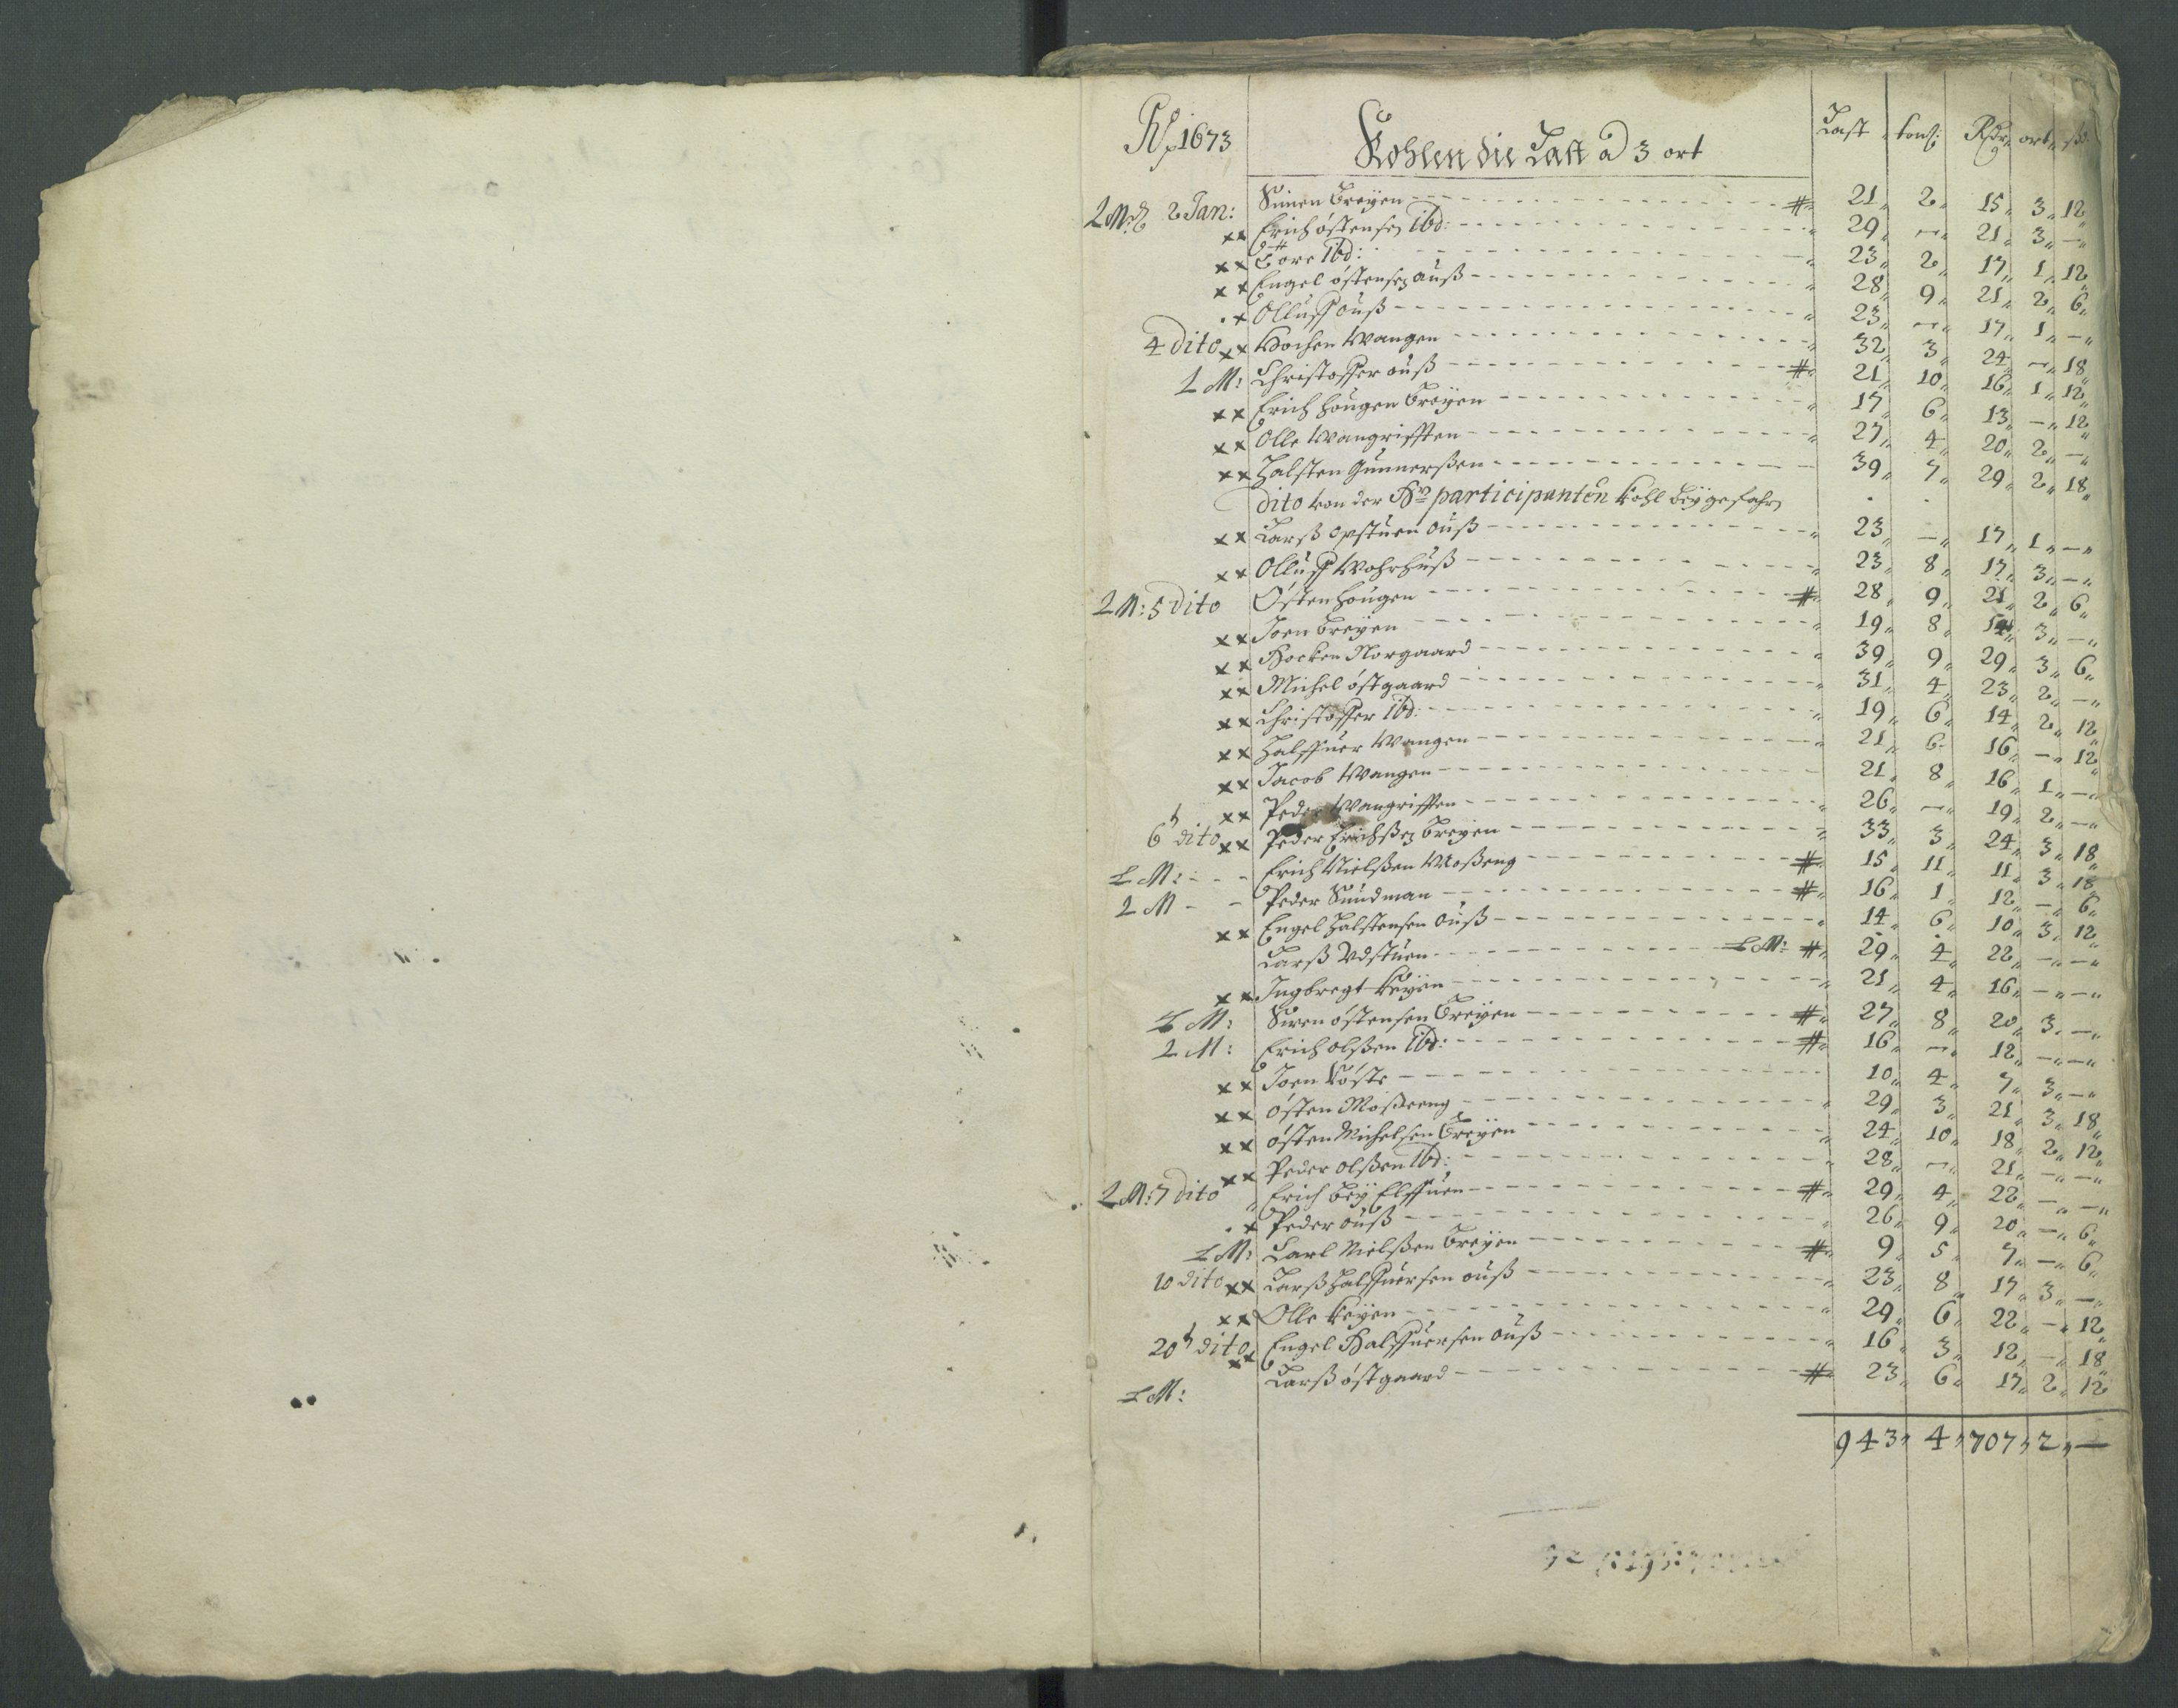 1673 Kohlen die Last a 3 ort Last tonn: Rdr ort ß
2 Jan: Simen Breyen # 21 2 15 3 12
×× Erich östensen ibd: 29 — 21 3 —
×× Tore ibd: 23 2 17 1 12
×× Engel östensen auß 28 9 21 2 6
× Olluff auß 23 — 17 1 —
4 dito ×× Wangen 32 3 24 — 18
LM: Christoffer auß # 21 10 16 1 12
×× Erich Hougen Breyen 17 6 13 — 12
×× Olle Wangrifften 27 4 20 2 —
×× Halsten Gunnerßen 39 7 29 2 18
dito von der Hn participanten Kohl beygefahrn
×× Larß opstuen auß 23 — 17 1 —
×× Olluff Wohrhuß 23 8 17 3 —
LM: 5 dito Östen Hougen # 28 9 21 2 6
×× Joen Breyen 19 8 14 3 —
×× Hocken Norgaard 39 9 29 3 6
×× Michel östgaard 31 4 23 2 —
×× Christoffer ibd: 19 6 14 2 12
×× Halffuer Wangen 21 6 16 — 12
×× Jacob Wangen 21 8 16 1 —
×× Peder Wangrifften 26 — 19 2 —
6 dito ×× Peder Erichßen Breyen 33 3 24 3 18
LM: Erich Nielßen Moßeng # 15 11 11 3 18
LM Peder Sundman # 16 1 12 — 6
×× Engel Halstensen auß 14 6 10 3 12
Larß Udstuen LM: # 29 4 22 — —
×× Ingbregt Köyen 21 4 16 — —
LM: Siven östensen Breyen # 27 8 20 3 —
LM: Erich olßen ibd: # 16 — 12 — —
×× Joen Köste 10 4 7 3 —
×× östen Moßeeng 29 3 21 3 18
×× östen Michelsen Breyen 24 10 18 2 12
×× Peder olßen ibd: 28 — 21 — —
LM: 7 dito Erich bey Elffuen # 29 4 22 — —
× Peder auß 26 9 20 — 6
LM: Carl Nielßen Breyen # 9 5 7 — 6
10 dito ×× Larß Halffuersen auß 23 8 17 3 —
×× Olle Köyen 29 6 22 — 12
20 dito ×× Engel Halffuersen auß 16 3 12 — 18
LM: Larß östgaard # 23 6 17 2 12
943 4 707 2 —